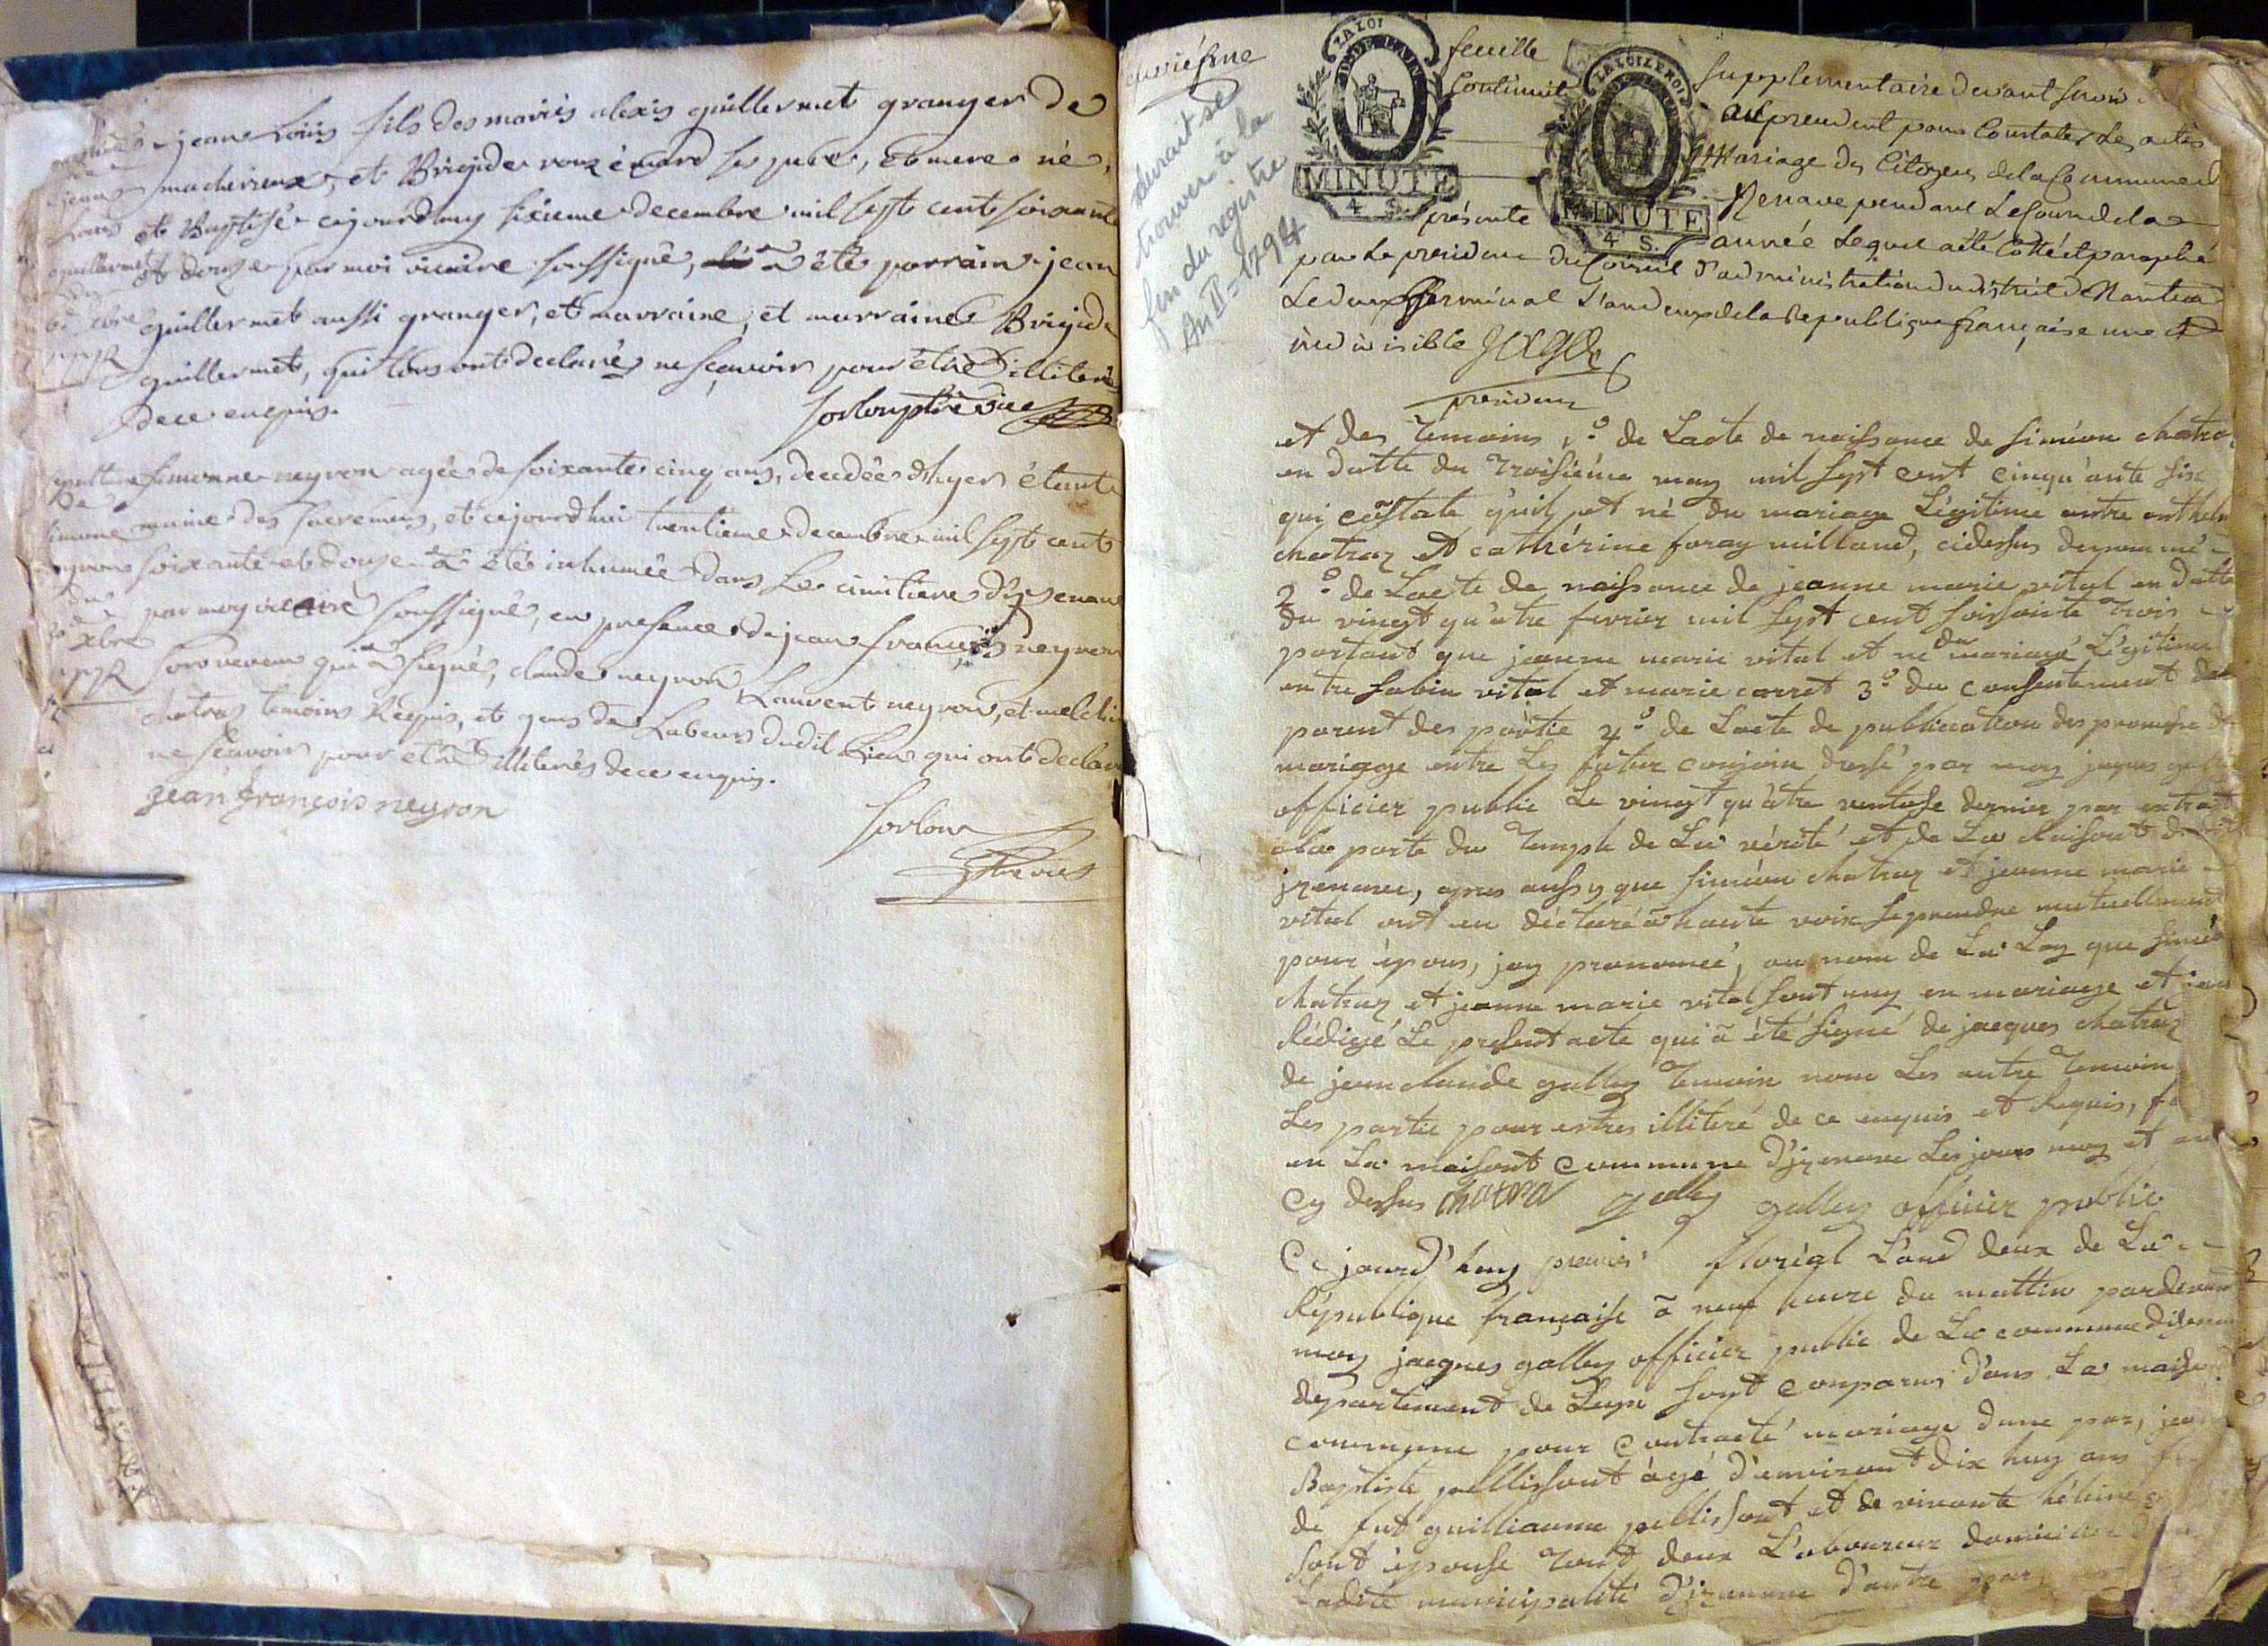 jean Louis fils des mariés alexis guillermet granger de
et Brigide ses pere, et mere né,
et Baptisé cejourdhuy sixieme decembre mil sept cent soixante
et douze par moi vicaire soussigné, à été parrain jean
guillermet aussi granger, et marraine, et marraine Brigide
guillermet, qui tous ont declarés ne sçavoir pour être illiterés
de ce enquis.
jean
Louis
guillermet
du
xbre
1772
simonne neyron agée de soixante cinq ans, decedée d'hyer étant
munie des sacremens, et cejourdhui trentieme decembre mil sept cent
soixante et douze à été inhumée dans Le cimitiere d'yzenave
par moy vicaire soussigné, en presence de jean françois neyron
son neveu qui à signé, claude neyron, Laurent neyron, et
chatras temoins Requis, et gens de Labeur dudit Lieu qui ont declaré
ne sçavoir pour être illiterés de ce enquis.
sepulture
de
simone
neyron
du
30
xbre
1772
jean françois neyron
Sorlon
feuille
supplementaire devant servir
Contenuit
Constater Les actes
mariage des Citoyens de la Commune d
pendant Le Cour de la
présente
année Lequel a été Cotté et paraphé
par Le president du Conseil d'administration du district de Nantua
Le deux Germinal L'an deux de la Republique française une et
indivisible
president
LA LOI
MINUTE
4 S.
LA LOI LE ROI
MINUTE
4 S.
devrait se
trouver à la
fin du registre
An II = 1794
et des temoins 1° de Lacte de naissance de siméon chatra
en datte du troisiéme may mil sept cent cinquante six
qui constate quil et né du mariage Légitime entre
chatraz et cathérine foray milland, cidessus denommé
2° de Lacte de naissance de jeanne marie vital en datte
du vingt quatre fevrier mil sept cent soissante trois
portant que jeanne marie vital et né du mariage Légitime
entre sabin vital et marie carret 3° du consentement des
parent des partie 4° de Lacte de publication des promesse de
mariage entre Les futur conjoin dressé par moy jaques galley
officier public Le vingt quatre ventose dernier par extrait
a la porte du temple de La vérité et de La Raisont
jzenave, apres aussy que siméon chatraz et jeanne marie
vital ont eu déclaré à haute voix se prendre mutuellement
pour épous, jay prononcé, au nom de La Loy que siméon
chatraz et jeanne marie vital sont uny en mariage et
Rédigé Le present acte qui à été signé de jacques chatraz
de jean claude galley temoin nom Les autre temoin
Les partie pour estres illiteré de ce enquis et Requis,
en La maisont commune d'jzenave Les jours moy et an
cy dessus chatra galley galley officier public
Ce jourd'huy premier floréal L'and deux de La
République française à neuf heure du mattin pardevant
moy jacques galley officier public de La commune
departement de Leyn sont comparus dans La maisont
commune pour contracté mariage dune par, jean
Baptiste pellissont agé d'environt dix huy ans
de fut guilliaume pellissont et de vivante héléine
sont épouse tout deux Laboureur domicilié
Ladite municipalité d'jzenave d'autre par